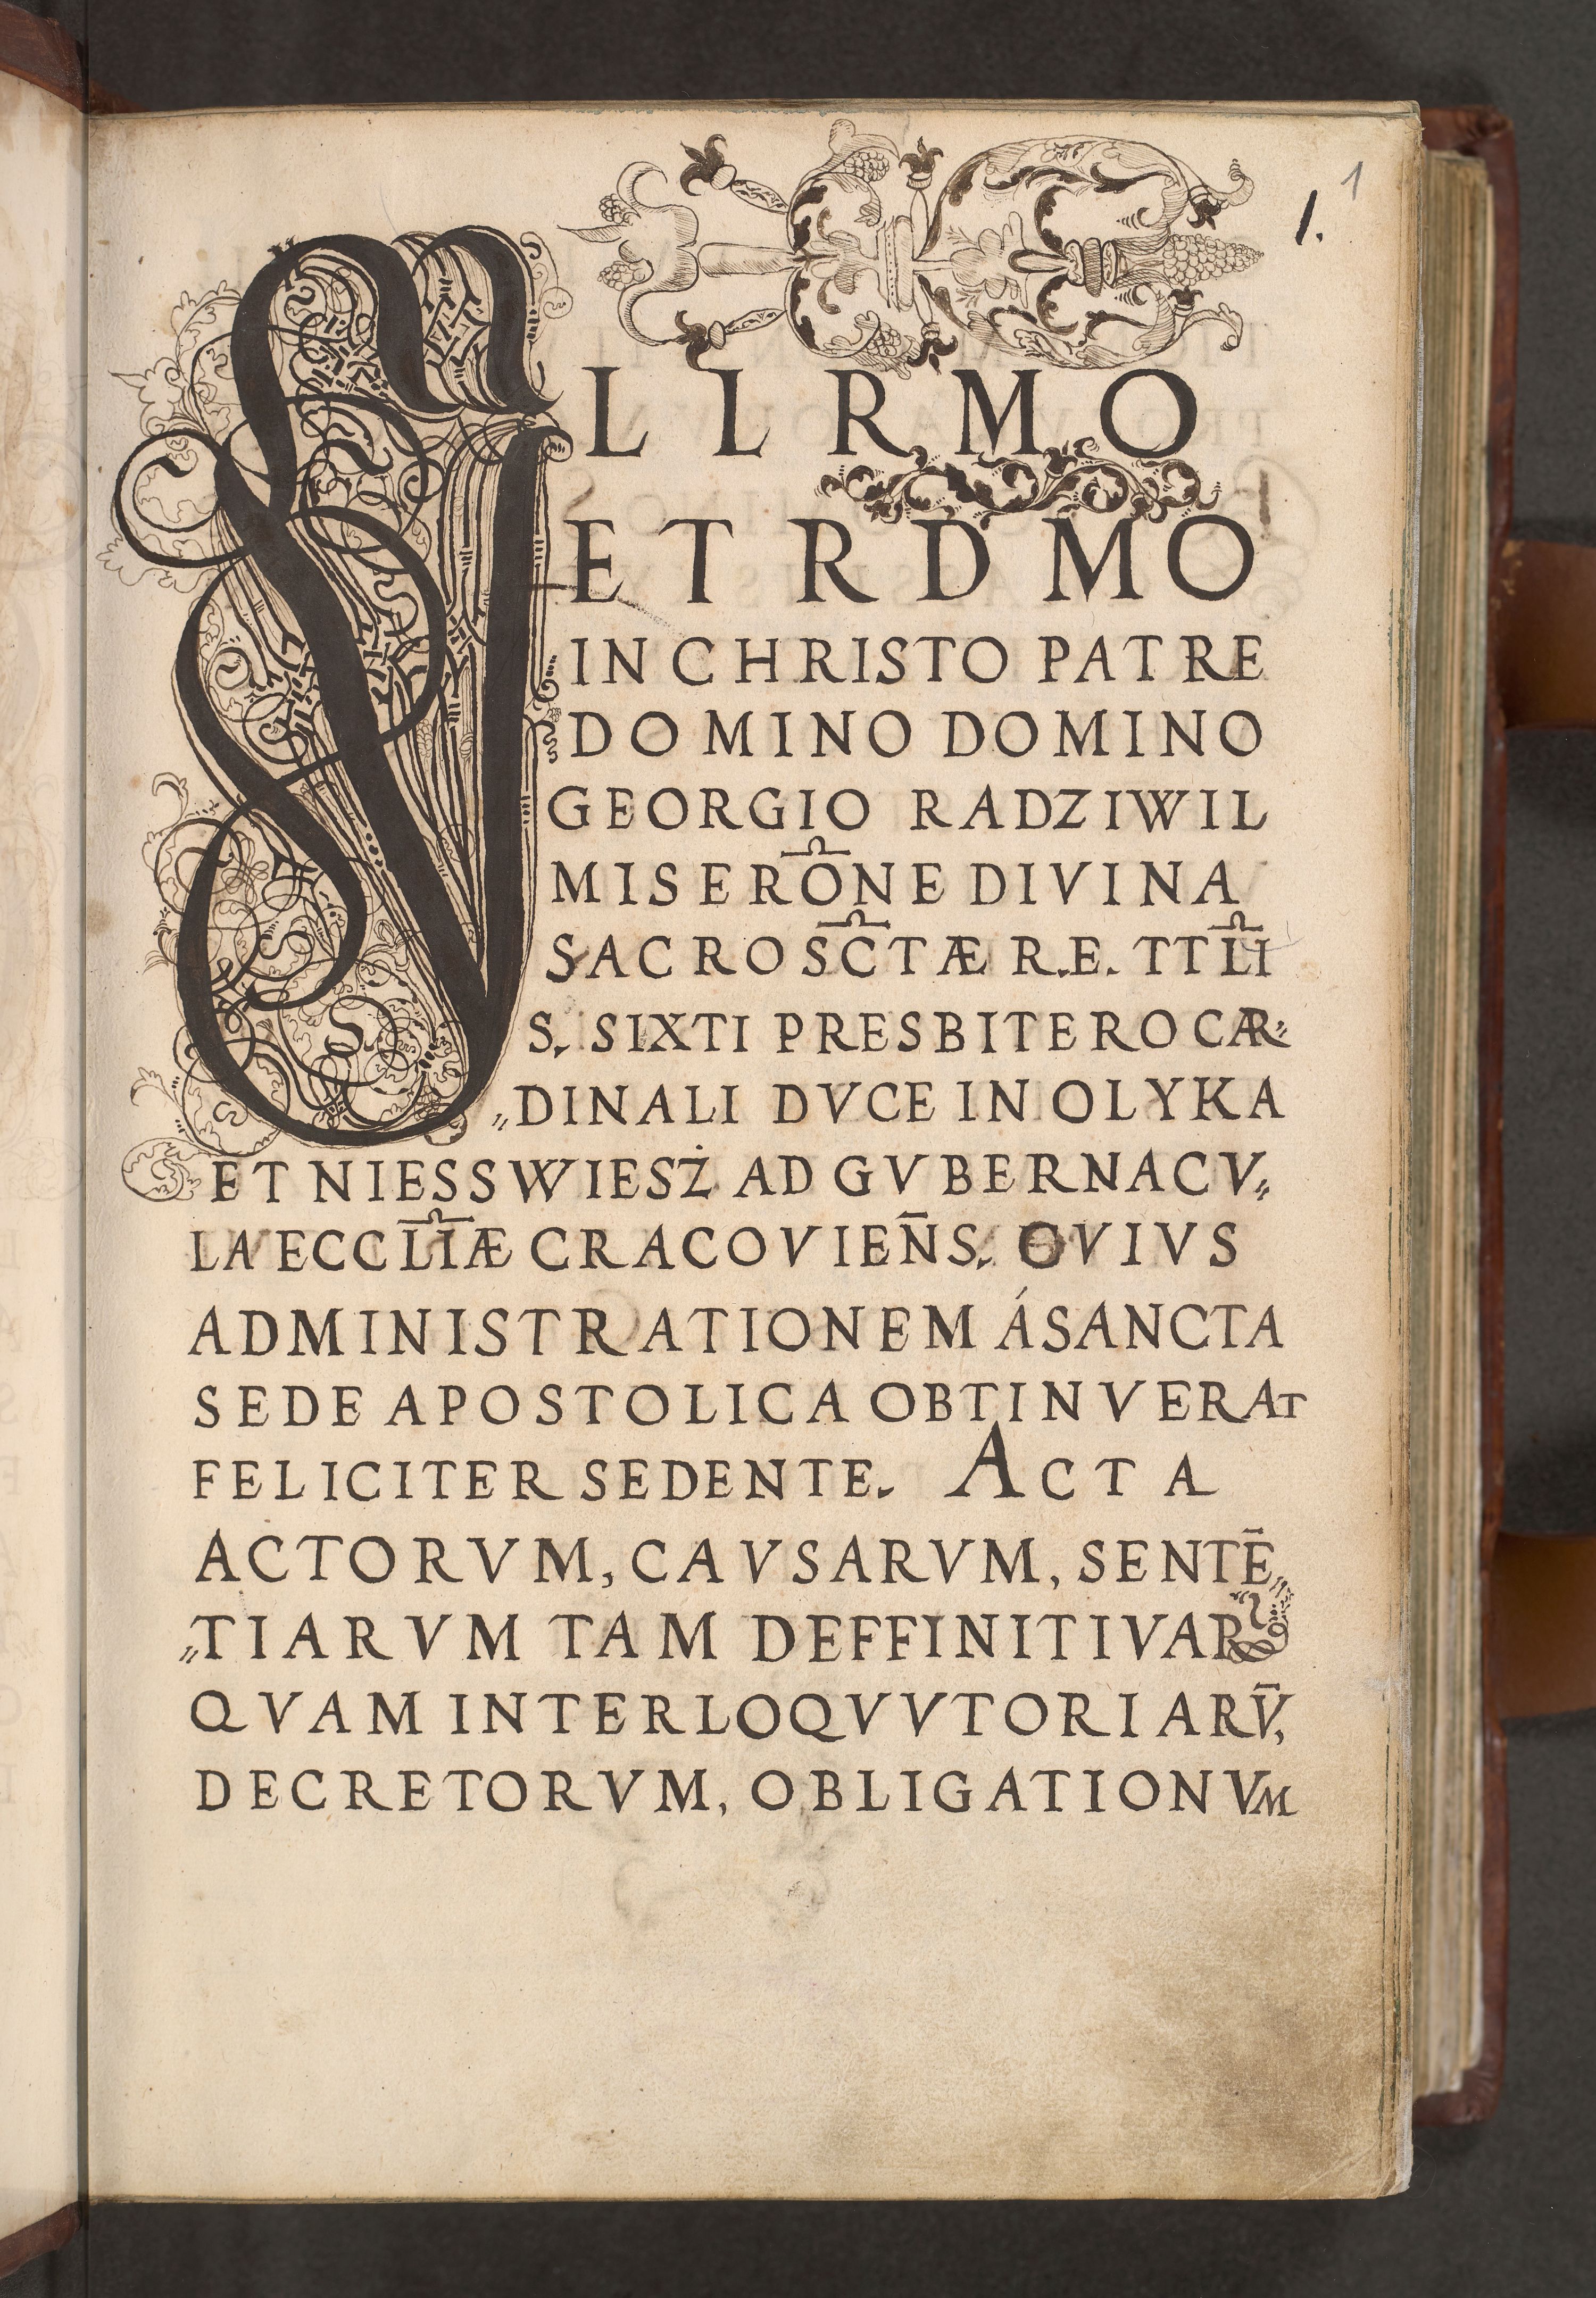 1
1.
ILLRMO
ET RDMO
IN CHRISTO PATRE
DOMINO DOMINO
GEORGIO RADZIWIL
MISERO͞NE DIVINA
SACROSC͞TÆ R. E. TTL͞I
S. SIXTI PRESBITERO CAR⸗
⸗DINALI DVCE IN OLYKA
ET NIESSWIESŻ AD GVBERNACV⸗
LA ECCL͞IÆ CRACOVIEN̄S. CVIVS
ADMINISTRATIONEM Á SANCTA
SEDE APOSTOLICA OBTINVERAT
FELICITER SEDENTE. ACTA
ACTORVM, CAVSARVM, SENTĒ⸗
⸗TIARVM TAM DEFFINITIVARꝫ
QVAM INTERLOQVVTORIARV̄,
DECRETORVM, OBLIGATIONVM